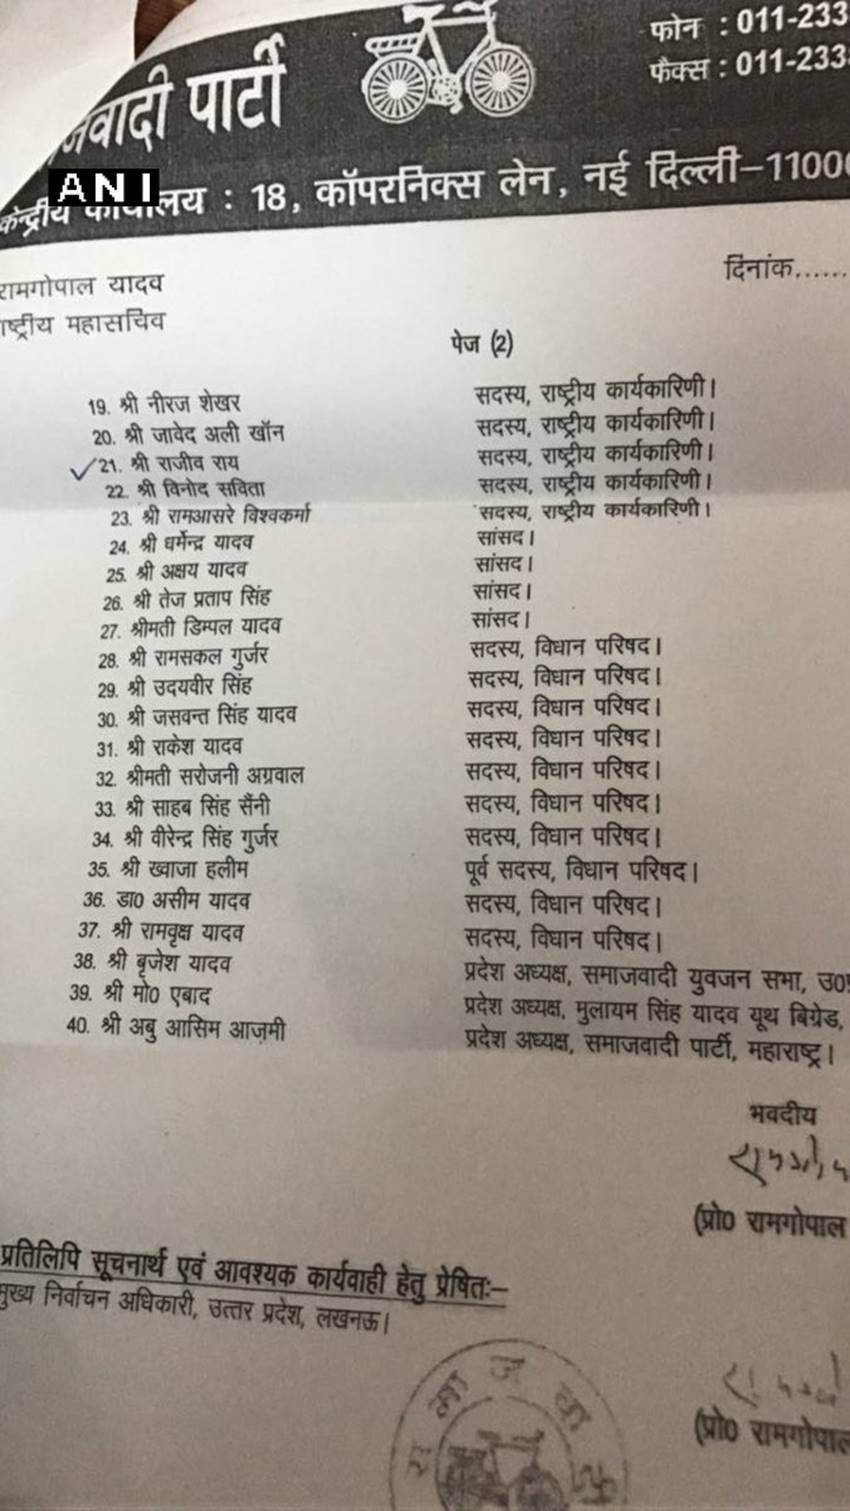 जवादी पार्टी
फोन : 011-233
फैक्स : 011-233
ANI
केन्द्रीय कार्यालय : 18, कॉपरनिक्स लेन, नई दिल्ली-11000
रामगोपाल यादव
दिनांक......
ष्ट्रीय महासचिव
पेज (2)
19. श्री नीरज शेखर सदस्य, राष्ट्रीय कार्यकारिणी।
20. श्री जावेद अली खॉन सदस्य, राष्ट्रीय कार्यकारिणी।
21. श्री राजीव राय सदस्य, राष्ट्रीय कार्यकारिणी।
22. श्री विनोद सविता सदस्य, राष्ट्रीय कार्यकारिणी।
23. श्री रामआसरे विश्वकर्मा सदस्य, राष्ट्रीय कार्यकारिणी।
24. श्री धर्मेन्द्र यादव सांसद।
25. श्री अक्षय यादव सांसद।
26. श्री तेज प्रताप सिंह सांसद।
27. श्रीमती डिम्पल यादव सांसद।
28. श्री रामसकल गुर्जर सदस्य, विधान परिषद।
29. श्री उदयवीर सिंह सदस्य, विधान परिषद।
30. श्री जसवन्त सिंह यादव सदस्य, विधान परिषद।
31. श्री राकेश यादव सदस्य, विधान परिषद।
32. श्रीमती सरोजनी अग्रवाल सदस्य, विधान परिषद।
33. श्री साहब सिंह सैंनी सदस्य, विधान परिषद।
34. श्री वीरेन्द्र सिंह गुर्जर सदस्य, विधान परिषद।
35. श्री ख्वाजा हलीम पूर्व सदस्य, विधान परिषद।
36. डा0 असीम यादव सदस्य, विधान परिषद।
37. श्री रामवृक्ष यादव सदस्य, विधान परिषद।
38. श्री बृजेश यादव प्रदेश अध्यक्ष, समाजवादी युवजन सभा, उ0
39. श्री मो0 एबाद प्रदेश अध्यक्ष, मुलायम सिंह यादव यूथ बिग्रेड,
40. श्री अबु आसिम आज़मी प्रदेश अध्यक्ष, समाजवादी पार्टी, महाराष्ट्र।
भवदीय
(प्रो0 रामगोपाल
प्रतिलिपि सूचनार्थ एवं आवश्यक कार्यवाही हेतु प्रेषितः-
मुख्य निर्वाचन अधिकारी, उत्तर प्रदेश, लखनऊ।
(प्रो0 रामगोपाल